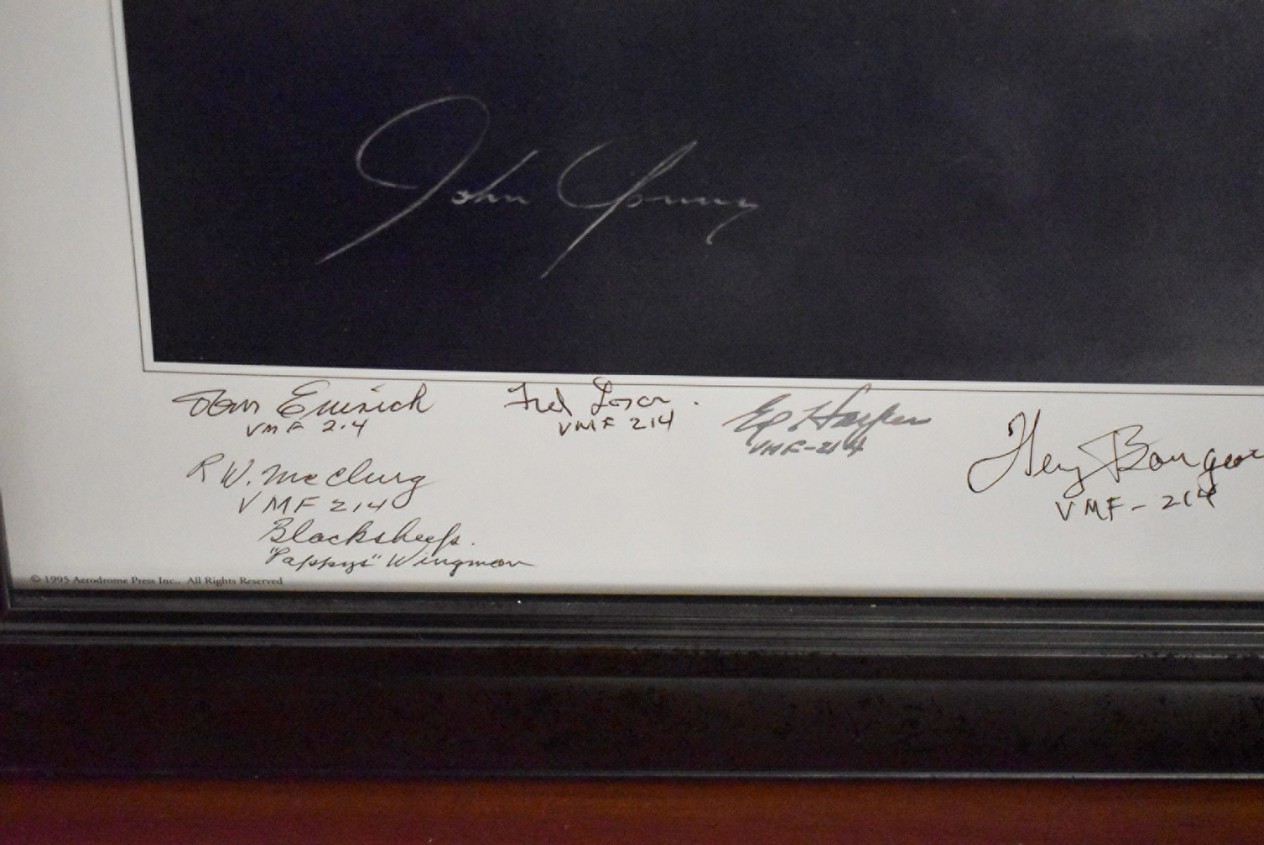 John Young
Tom Emrich
VMF 214
Fred Losch
VMF 214
Ed Harper
VMF-214
Henry Bourgeois
VMF-214
R W. McClurg
VMF 214
Blacksheep.
"Pappys" Wingman
© 1995 Aerodrome Press Inc.. All Rights Reserved